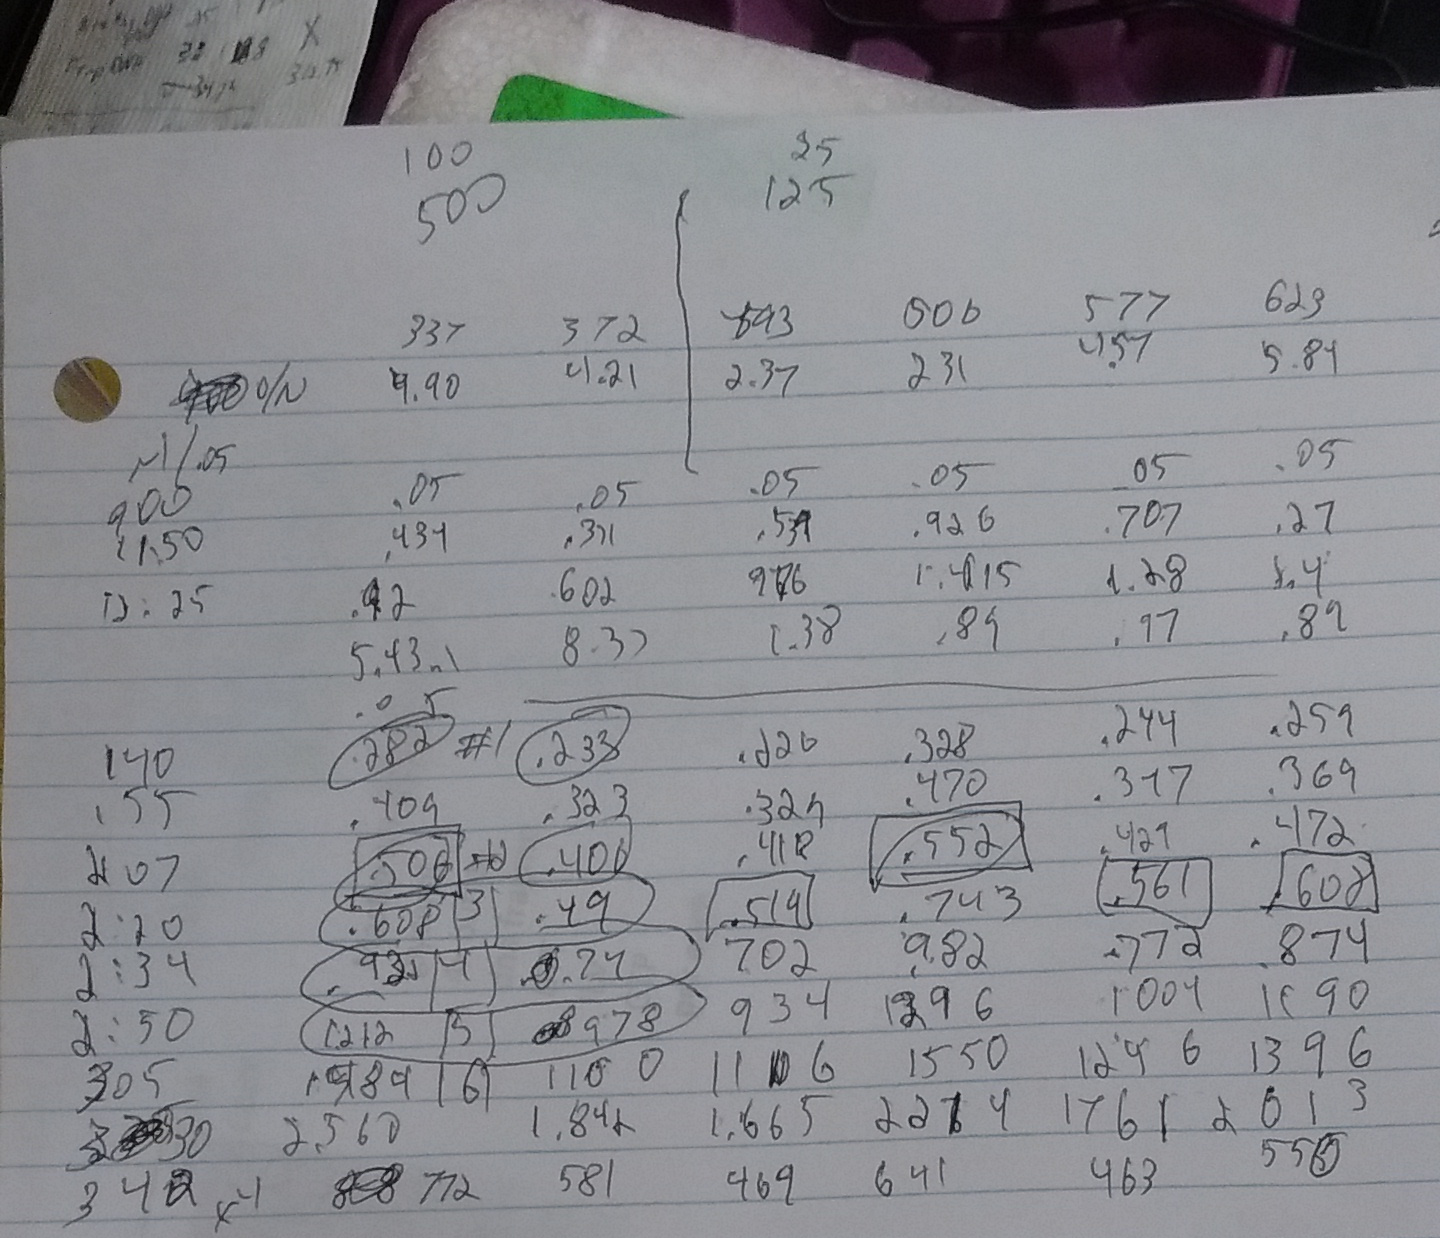 25
28 118 X
100 25
500 125
337 372 593 506 577 623
O/N 4.90 4.21 2.37 231 4.57 5.84
.05
900 .05 .05 .05 .05 .05 .05
11.50 .434 .371 .539 .926 .707 .27
12:25 .92 .602 976 1.415 1.28 1.4
5.43 8.37 1.38 .89 .97 .89
.05
140 .282 #1 .233 .226 .328 .244 .259
155 .409 .323 .324 .470 .347 .369
207 .506 #2 .406 .418 .552 .429 .472
2:20 .608 3 .49 .514 .743 .561 .608
2:34 4 .74 702 .982 .772 .874
2:50 1212 5 978 934 1296 1004 1190
305 6 1100 1106 1550 1246 1396
330 2.560 1.842 1.665 2274 1761 2013
342 x4 772 581 469 641 463 555